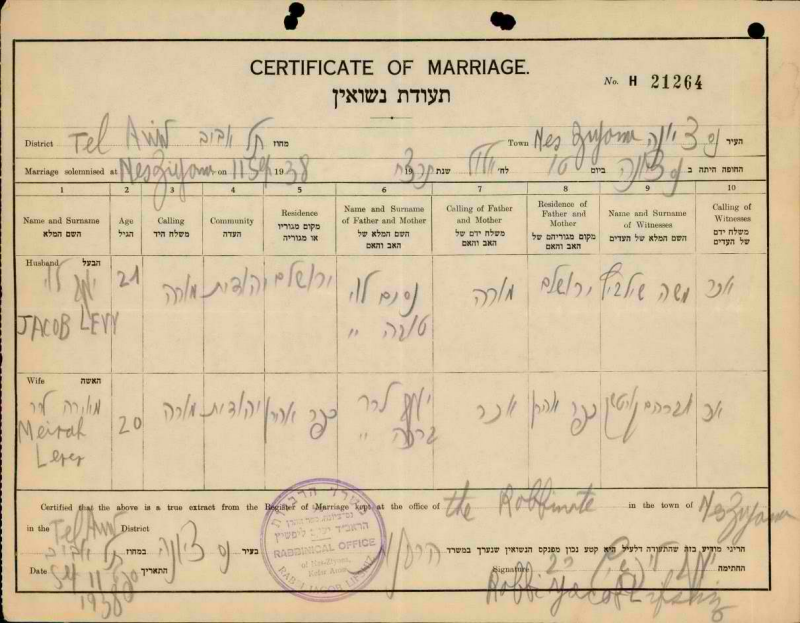 CERTIFICATE OF MARRIAGE.
No. H 21264
תעודת נשואין
District Tel Aviv תל אביב מחוז Town Nes Zuyona נס ציונה העיר
Marriage solemnised at Nes Ziyona on 11 Sept 1938 תרצח שנת אלול לח' טו ביום נס ציונה החופה היתה ב
1 2 3 4 5 6 7 8 9 10
Name and Surname השם המלא
Age הגיל
Calling משלח היד
Community העדה
Residence מקום מגוריו או מגוריה
Name and Surname of Father and Mother השם המלא של האב והאם
Calling of Father and Mother משלח ידם של האב והאם
Residence of Father and Mother מקום מגוריהם של האב והאם
Name and Surname of Witnesses השם המלא של העדים
Calling of Witnesses משלח ידם של העדים
Husband הבעל
יעקב לוי 21 מורה יהודית ירושלים נסים לוי מורה ירושלים משה אכר
JACOB LEVY טובה "
Wife האשה
מאירה לרר 20 מורה יהודית כפר אהרן יעקב לרר אכר כפר אהרן אברהם אכר
Meirah Lerer ברכה "
Certified that the above is a true extract from the Register of Marriage kept at the office of the Rabbinate in the town of Nes Zuyona
in the Tel Aviv District
הריני מודיע בזה שהתעודה דלעיל היא קטע נכון מפנקס הנשואין שנערך במשרד הרבנות בעיר נס ציונה במחוז תל אביב
Date Sept 11 1938 התאריך
Signature החתימה
Rabbi Yacob Lifshiz
RABBINICAL OFFICE
of Nes-Ziyona,
Kefar Aaron
RABBI JACOB LIPSHIZ